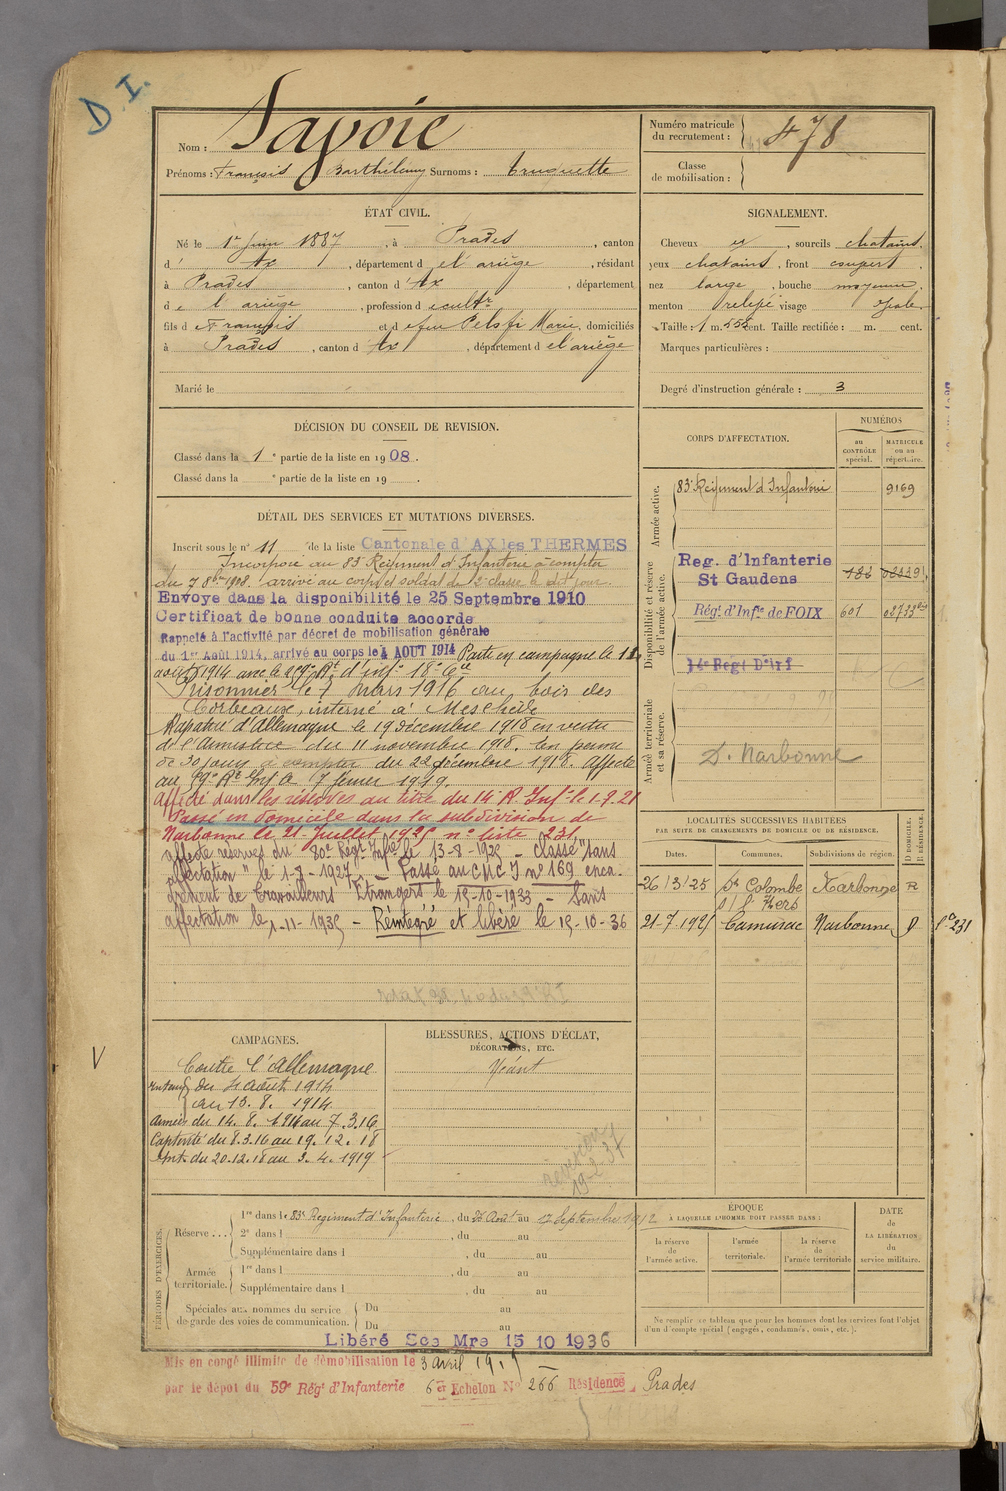 D. I.
Nom : Savoie
Prénoms : François Barthélémy Surnoms : truquette
Numéro matricule du recrutement : 478
Classe de mobilisation :
ÉTAT CIVIL.
Né le 1er Juin 1887, à Prades, canton
d' Ax, département de l'ariège, résidant
à Prades, canton d' Ax, département
de l'ariège, profession de cultr
fils de François et de feu Marie, domiciliés
à Prades, canton d' Ax, département de l'ariège
Marié le
SIGNALEMENT.
Cheveux et, sourcils chatains,
yeux chatains, front couvert,
nez large, bouche moyenne,
menton relevé visage ovale
Taille : 1 m. 555 cent. Taille rectifiée : m. cent.
Marques particulières :
Degré d'instruction générale : 3
DÉCISION DU CONSEIL DE REVISION.
Classé dans la 1e partie de la liste en 1908.
Classé dans la e partie de la liste en 19 .
CORPS D'AFFECTATION.
NUMÉROS
au CONTRÔLE spécial.
MATRICULE ou au répertoire.
Armée active.
83e Régiment d'Infanterie 9169
Disponibilité et réserve de l'armée active.
Reg. d'Infanterie
St Gaudens
Rég. d'Infie de FOIX 601
14e Regt D'Inf
Armée territoriale et sa réserve.
D. Narbonne
DÉTAIL DES SERVICES ET MUTATIONS DIVERSES.
Inscrit sous le n° 11 de la liste Cantonale d'AX les THERMES
Incorporé au 83 Régiment d'Infanterie à compter
du 7 8bre 1908. arrivé au corps et soldat de 2e classe le dit jour.
Envoye dans la disponibilité le 25 Septembre 1910
Certificat de bonne conduite accorde
Rappelé à l'activité par décret de mobilisation générale
du 1er Août 1914, arrivé au corps le 4 AOUT 1914 Parti en campagne le
août 1914 avec le Rt d'infie 18e Cie
Prisonnier le 7 mars 1916 au bois des
Corbeaux, interné à Meschede
Rapatrié d'Allemagne le 19 décembre 1918 en vertu
de l'armistice du 11 novembre 1918. En perme
de 30 jours à compter du 22 décembre 1918. Affecté
au Rt Inf le 7 février 1919.
Affecté dans les réserves au titre du 14e R. Inf. le 1.9.21
Passé en domicile dans la subdivision de
Narbonne le 21 Juillet 1925 n° liste 231
affecté réserves du 80e Régt Infie le 13-8-1925 – classé "sans
affectation" le 1-7-1927. – Passé au CMC J n° 169 enca-
drement de Travailleurs Etrangers le 15-10-1933 – Sans
affectation le 1-11-1935 – Réintégré et libéré le 15-10-36
LOCALITÉS SUCCESSIVES HABITÉES
PAR SUITE DE CHANGEMENTS DE DOMICILE OU DE RÉSIDENCE.
Dates. Communes. Subdivisions de région. D DOMICILE. R RÉSIDENCE.
26/3/25 Ste Colombe s/ l'Hers Narbonne R
21-7-1925 Camurac Narbonne D
CAMPAGNES.
Contre l'Allemagne
du 4 Aout 1914
au 13. 8. 1914
Armées du 14. 8. 1914 au 7. 3. 16
Captivité du 8.3.16 au 19. 12. 18
Int. du 20.12.18 au 3. 4. 1919
BLESSURES, ACTIONS D'ÉCLAT,
DÉCORATIONS, ETC.
Néant
19-2-37
PÉRIODES D'EXERCICES.
Réserve ... 1re dans le 83e Régiment d'Infanterie, du 26 Août au 17 Septembre 1912
2e dans l , du au
Supplémentaire dans l , du au
Armée territoriale. 1re dans l , du au
Supplémentaire dans l , du au
Spéciales aux hommes du service de garde des voies de communication. Du au
Du au
ÉPOQUE
À LAQUELLE L'HOMME DOIT PASSER DANS :
la réserve de l'armée active.
l'armée territoriale.
la réserve de l'armée territoriale
DATE de LA LIBÉRATION du service militaire.
Ne remplir ce tableau que pour les hommes dont les services font l'objet
d'un décompte spécial (engagés, condamnés, omis, etc.)
Libéré Sce Mre 15 10 1936
Mis en congé illimité de démobilisation le 3 avril 1919
par le dépôt du 59e Rég' d'Infanterie 6er Echelon N° 266 Résidence Prades